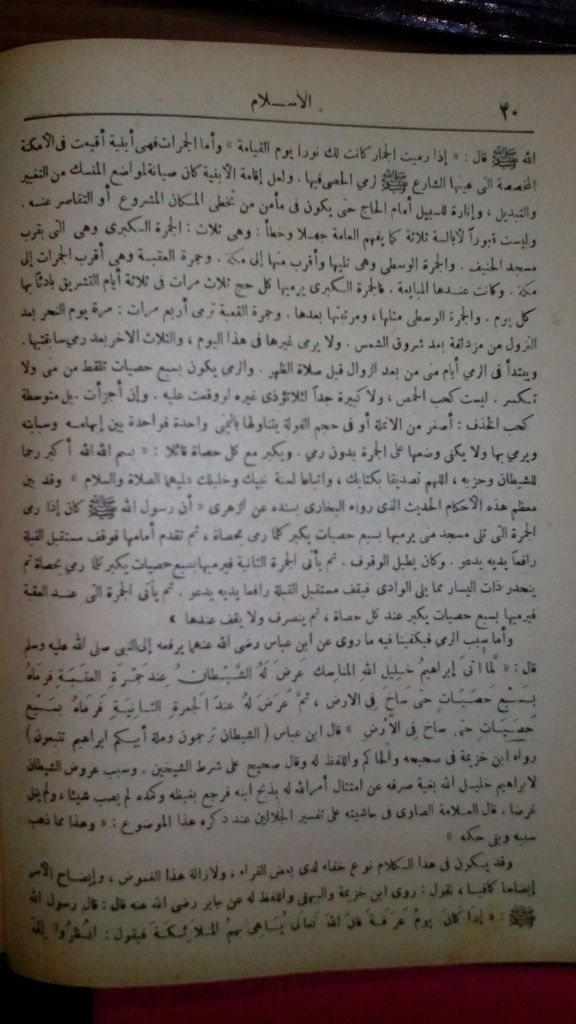 ٣٠
الاســلام
الله ﷺ قال : « إذا رميت الجمار كانت لك نورا يوم القيامة » وأما الجمرات فهى أبنية أقيمت فى الأمكنة
المخصصة التى عينها الشارع ﷺ لرمي الحصى فيها . ولعل إقامة الأبنية كان صيانة لمواضع المنسك من التغيير
والتبديل ، وإنارة للسبيل أمام الحاج حتى يكون فى مأمن من تخطى المكان المشروع أو التقاصر عنه .
وليست قبوراً لأبالسة ثلاثة كما يفهم العامة جهلا وخطأ : وهى ثلاث : الجمرة الكبرى وهى التى بقرب
مسجد الخيف . والجمرة الوسطى وهى تليها وأقرب منها إلى مكة . وجمرة العقبة وهى أقرب الجمرات إلى
مكة . وكانت عندها المبايعة . فالجمرة الكبرى يرميها كل حج ثلاث مرات فى ثلاثة أيام التشريق بادئا بها
كل يوم . والجمرة الوسطى مثلها ، ومرتبتها بعدها . وجمرة العقبة ترمى أربع مرات : مرة يوم النحر بعد
النزول من مزدلفة بعد شروق الشمس . ولا يرمى غيرها فى هذا اليوم ، والثلاث الاخر بعد رمى سابقتيها .
ويبتدأ فى الرمي أيام منى من بعد الزوال قبل صلاة الظهر . والرمي يكون بسبع حصيات تلقط من منى ولا
تكسر . ليست كحب الحمص ، ولا كبيرة جداً لئلا تؤذى غيره لو وقعت عليه . وإن أجزأت . بل متوسطة
كحب الخذف : أصغر من الانملة أو فى حجم الفولة يتناولها باليمنى واحدة فواحدة بين إبهامه وسبابته
ويرمي بها ولا يكفى وضعها على الجمرة بدون رمي . ويكبر مع كل حصاة قائلا : « بسم الله الله أكبر رجما
للشيطان وحزبه ، اللهم تصديقا بكتابك ، واتباعا لسنة نبيك وخليلك عليهما الصلاة والسلام » وقد بين
معظم هذه الأحكام الحديث الذى رواه البخارى بسنده عن الزهرى « أن رسول الله ﷺ كان إذا رمى
الجمرة التى تلى مسجد منى يرميها بسبع حصيات يكبر كلما رمى بحصاة ، ثم تقدم أمامها فوقف مستقبل القبلة
رافعاً يديه يدعو . وكان يطيل الوقوف . ثم يأتى الجمرة الثانية فيرميها بسبع حصيات يكبر كلما رمى بحصاة ثم
ينحدر ذات اليسار مما يلى الوادى فيقف مستقبل القبلة رافعا يديه يدعو . ثم يأتى الجمرة التى عند العقبة
فيرميها بسبع حصيات يكبر عند كل حصاة ، ثم ينصرف ولا يقف عندها »
وأما سبب الرمي فيكفينا فيه ما روى عن ابن عباس رضى الله عنهما يرفعه إلى النبى صلى الله عليه وسلم
قال : « لَمَّا أَتَى إبراهيمُ خَلِيلُ اللهِ المناسِكَ عَرَضَ لَهُ الشَّيْطَانُ عند جَمْرَةِ العقَبَةِ فرَمَاهُ
بِسَبْعِ حَصَيَاتٍ حَتَّى سَاخَ فِى الارْضِ ، ثُمَّ عَرَضَ لَهُ عندَ الْجَمرةِ الثانِيَةِ فَرمَاهُ بِسَبْعِ
حَصَيَاتٍ حتى ساخ فِى الأَرْضِ » قال ابن عباس ( الشيطان ترجمون وملة أبيكم ابراهيم تتبعون )
رواه ابن خزيمة فى صحيحه والحاكم واللفظ له وقال صحيح على شرط الشيخين . وسبب عروض الشيطان
لابراهيم خليل الله بغية صرفه عن امتثال أمر الله له بذبح ابنه فرجع بغيظه وكمده لم يصب شيئا ، ولم ينل
غرضا . قال العلامة الصاوى فى حاشيته على تفسير الجلالين عند ذكره هذا الموضوع : « وهذا مما ذهب
سببه وبقى حكمه »
وقد يكون فى هذا الكلام نوع خفاء لدى بعض القراء ، ولازالة هذا الغموض ، وإيضاح الأمر
إيضاحا كافيا ، نقول : روى ابن خزيمة والبيهقى واللفظ له عن جابر رضى الله عنه قال : قال رسول الله
ﷺ : « إذَا كَانَ يومُ عَرَفةَ فانَّ اللهَ تَعالَى يُبَاهِى بِهِمُ المَلاَئِكَةَ فيقول : انْظُرُوا إلَى